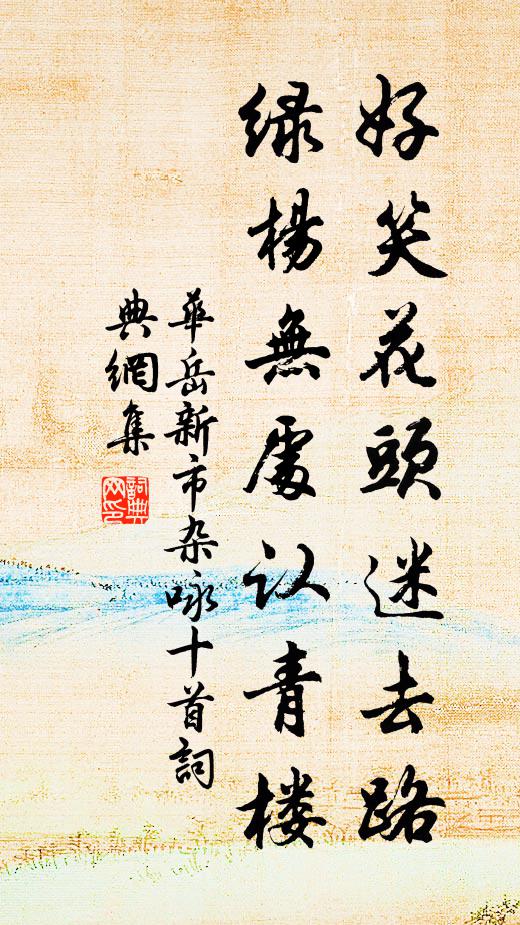 好笑花頭迷去路
绿楊無處认青楼
華岳新市杂咏十首詞
典網集
詞典网印